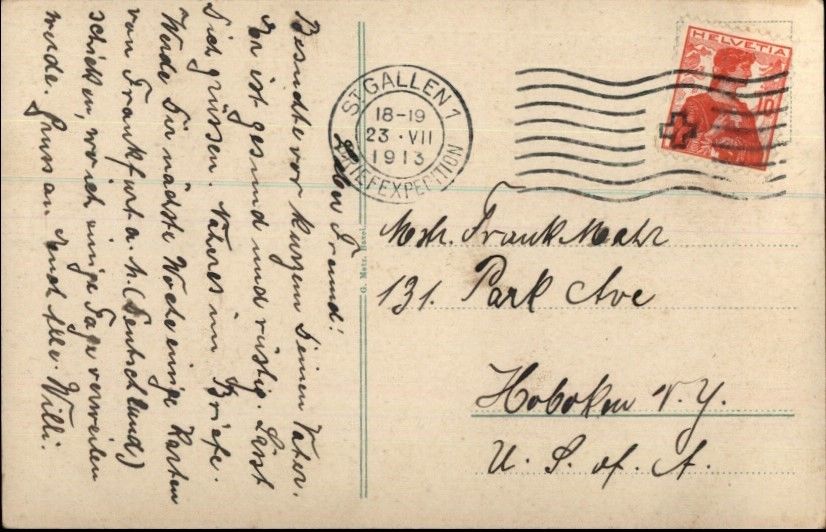 Lieber Freund!
Besuchte vor kurzem Deinen Vater.
Er ist gesund und rüstig. Lässt
Dich grüssen. Näheres im Briefe.
Werde Dir nächste Woche einige Karten
von Frankfurt a. M. (Deutschland)
schicken, wo ich einige Tage verweilen
werde. Gruss an Euch Alle. Willi.
G. Metz, Basel
ST. GALLEN 1
18-19
23 · VII
1913
BRIEFEXPEDITION
HELVETIA
10
Mstr. Frank Mahr
131. Park Ave
Hoboken N. Y.
U. S. of. A.